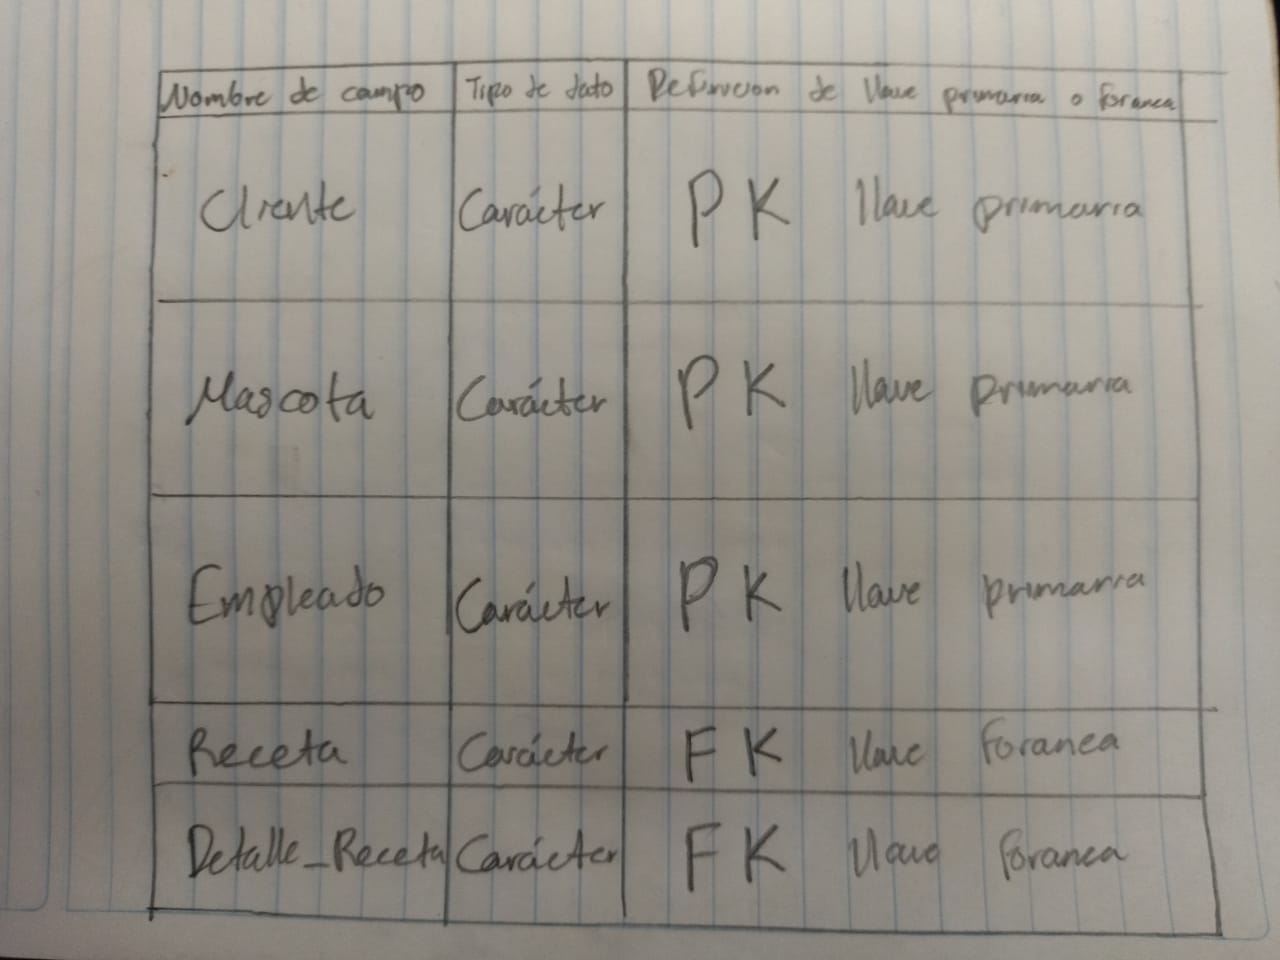 Nombre de campo Tipo de dato Definicion de llave primaria o foranea
Cliente Carácter PK llave primaria
Mascota Carácter PK llave primaria
Empleado Carácter PK llave primaria
Receta Carácter FK llave foranea
Detalle_Receta Carácter FK llave foranea